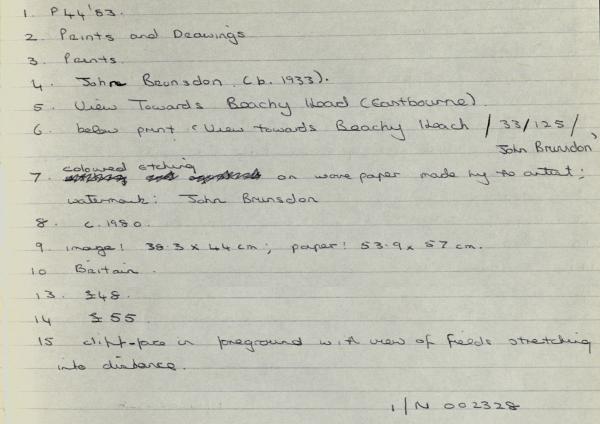 1. P44'83.
2. Prints and Drawings
3. Prints.
4. John Brunsdon (b. 1933).
5. View Towards Beachy Head (Eastbourne).
6. below print 'View towards Beachy Head / 33/125/,
John Brunsdon
7. coloured etching on wove paper made by the artist;
watermark: John Brunsdon
8. c. 1980.
9. image: 38.3 x 44 cm; paper: 53.9 x 57 cm.
10 Britain.
13. £48.
14 £55
15 cliff-face in foreground with view of fields stretching
into distance.
1/N 002328